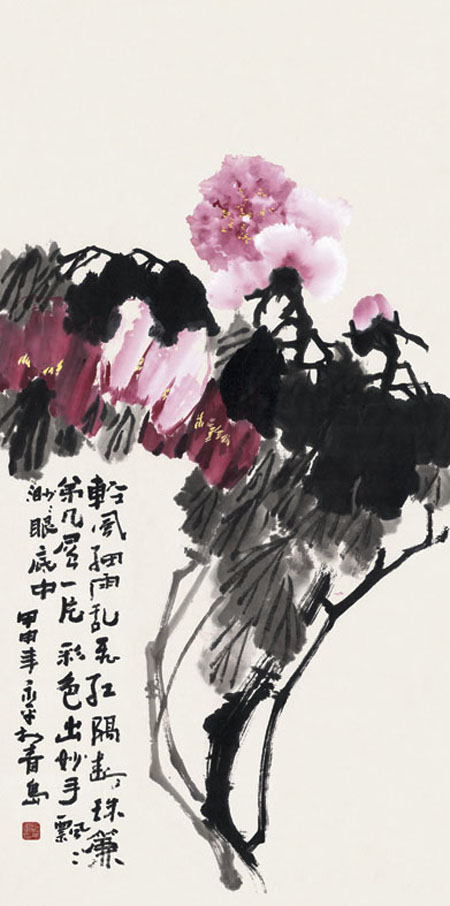 轻风细雨乱飞红隔断珠簾
第几层一片彩色出妙手飘〻
渺〻眼底中
甲申年永平於青岛